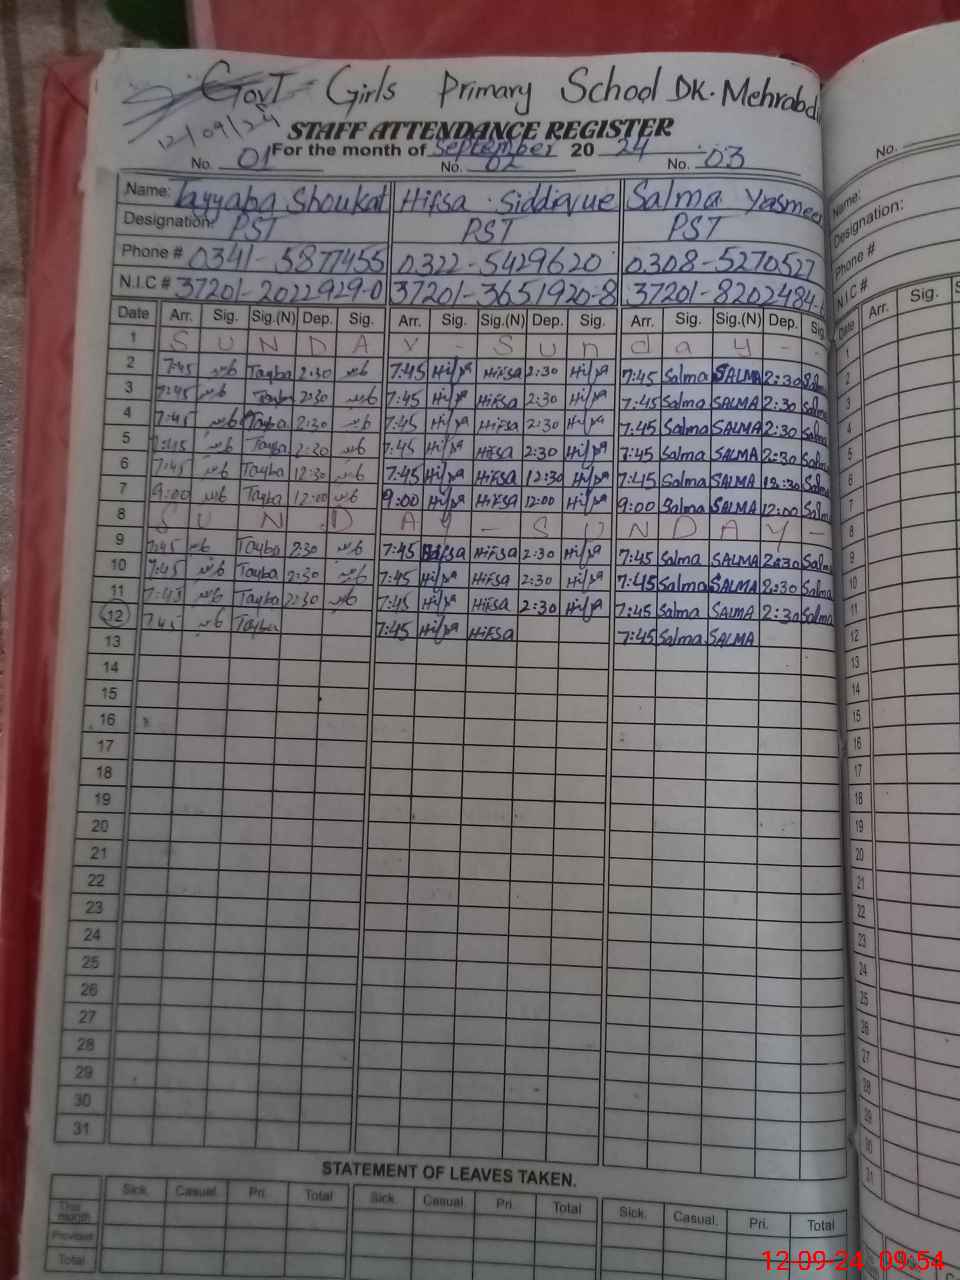 GovT Girls Primary School DK. Mehrabd
12/09/24
STAFF ATTENDANCE REGISTER
For the month of September 20 24
No. 01 No. 02 No. 03
Name: Tayyaba Shoukat Hifsa Siddique Salma Yasmeen
Designation: PST PST PST
Phone # 0341-5877455 0322-5429620 0308-5270527
N.I.C # 37201-2022929-0 37201-3651920-8 37201-8202484-
Date Arr. Sig. Sig.(N) Dep. Sig. Arr. Sig. Sig.(N) Dep. Sig. Arr. Sig. Sig.(N) Dep. Sig.
1 S U N D A Y - S u n d a y - -
2 7:45 طیبہ Tayba 2:30 طیبہ 7:45 Hifsa HiFsa 2:30 Hifsa 7:45 Salma SALMA 2:30 Salma
3 7:45 طیبہ Tayba 2:30 طیبہ 7:45 Hifsa HiFsa 2:30 Hifsa 7:45 Salma SALMA 2:30 Salma
4 7:45 طیبہ Tayba 2:30 طیبہ 7:45 Hifsa HiFsa 2:30 Hifsa 7:45 Salma SALMA 2:30 Salma
5 7:45 طیبہ Tayba 2:30 طیبہ 7:45 Hifsa HiFsa 2:30 Hifsa 7:45 Salma SALMA 2:30 Salma
6 7:45 طیبہ Tayba 12:30 طیبہ 7:45 Hifsa HiFsa 12:30 Hifsa 7:45 Salma SALMA 12:30 Salma
7 9:00 طیبہ Tayba 12:00 طیبہ 9:00 Hifsa HiFsa 12:00 Hifsa 9:00 Salma SALMA 12:00 Salma
8 S U N D A Y - S U N D A Y -
9 7:45 طیبہ Tayba 2:30 طیبہ 7:45 Hifsa HiFsa 2:30 Hifsa 7:45 Salma SALMA 2:30 Salma
10 7:45 طیبہ Tayba 2:30 طیبہ 7:45 Hifsa HiFsa 2:30 Hifsa 7:45 Salma SALMA 2:30 Salma
11 7:45 طیبہ Tayba 2:30 طیبہ 7:45 Hifsa HiFsa 2:30 Hifsa 7:45 Salma SALMA 2:30 Salma
12 7:45 طیبہ Tayba 7:45 Hifsa HiFsa 7:45 Salma SALMA
13
14
15
16
17
18
19
20
21
22
23
24
25
26
27
28
29
30
31
STATEMENT OF LEAVES TAKEN.
Sick. Casual. Pri. Total Sick. Casual. Pri. Total Sick. Casual. Pri. Total
This month
Previous
Total
No.
Name:
Designation:
Phone #
N.I.C #
Date Arr. Sig.
1
2
3
4
5
6
7
8
9
10
11
12
13
14
15
16
17
18
19
20
21
22
23
24
25
26
27
28
29
30
31
12-09-24 09:54